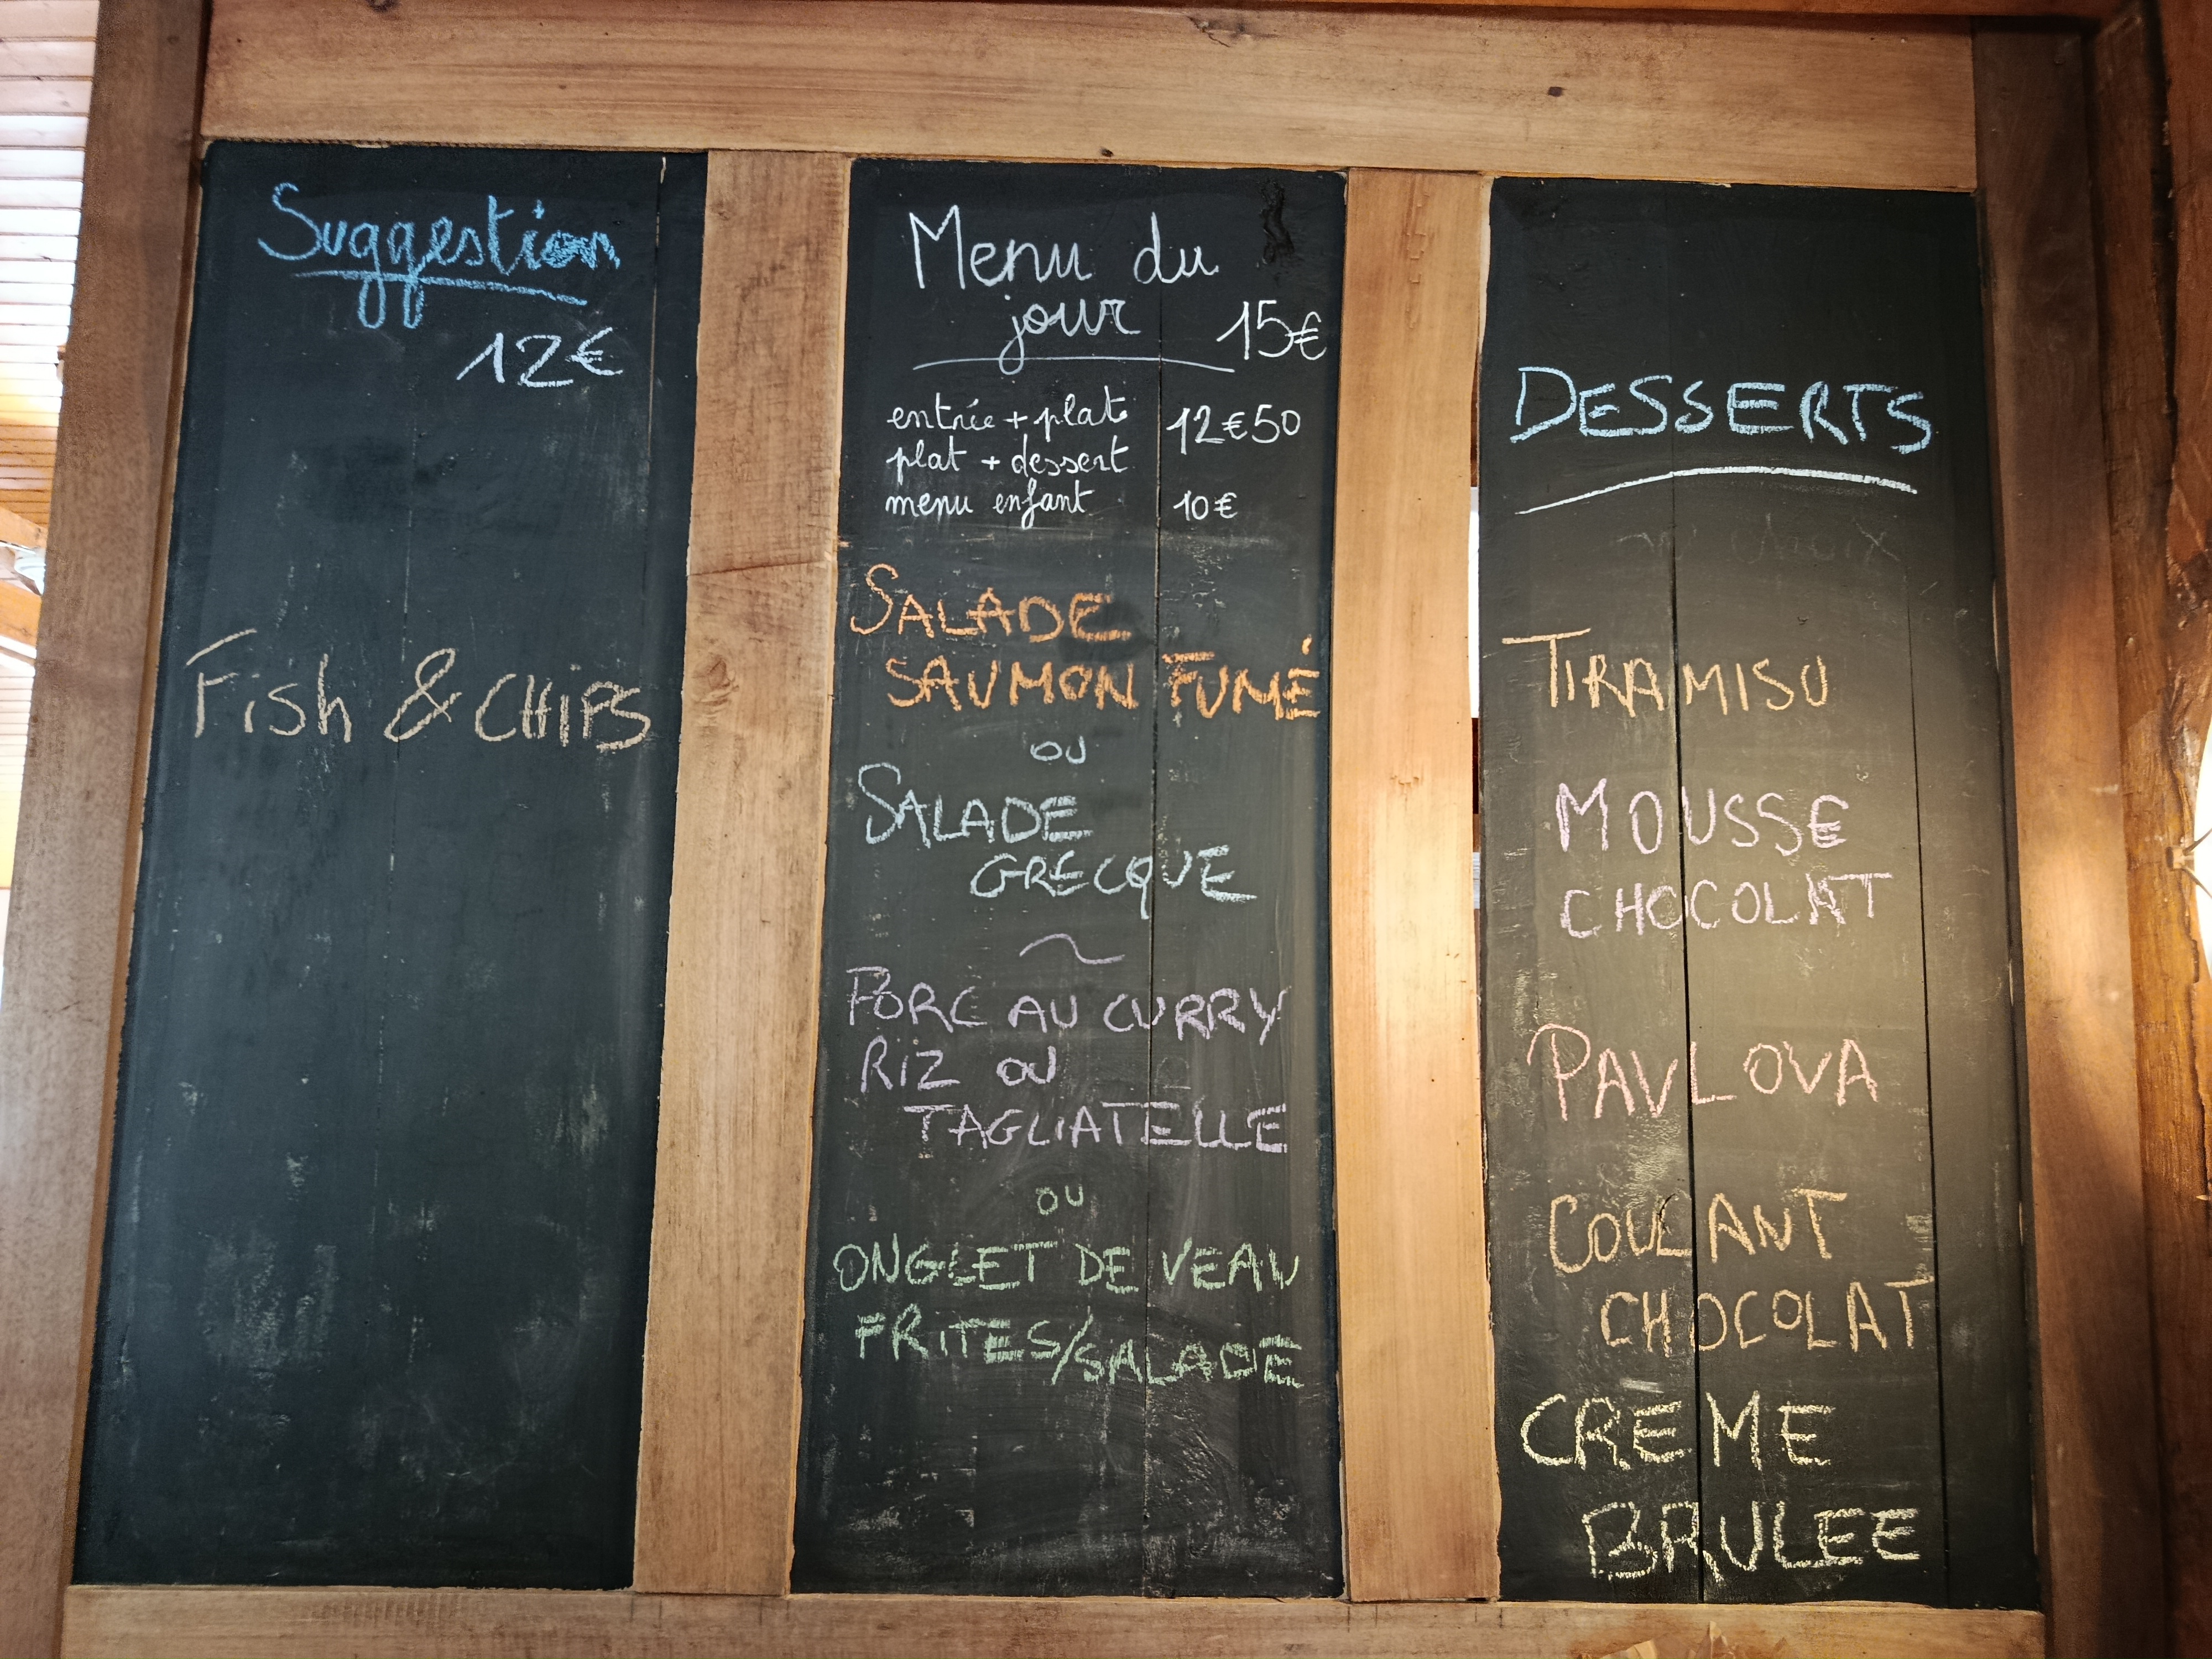 Suggestion
12€
Fish & CHIPS
Menu du
jour 15€
entrée + plat 12€50
plat + dessert
menu enfant 10€
SALADE
SAUMON FUMÉ
OU
SALADE
GRECQUE
~
PORC AU CURRY
RIZ OU
TAGLIATELLE
OU
ONGLET DE VEAU
FRITES/SALADE
DESSERTS
TIRAMISU
MOUSSE
CHOCOLAT
PAVLOVA
COULANT
CHOCOLAT
CREME
BRULEE